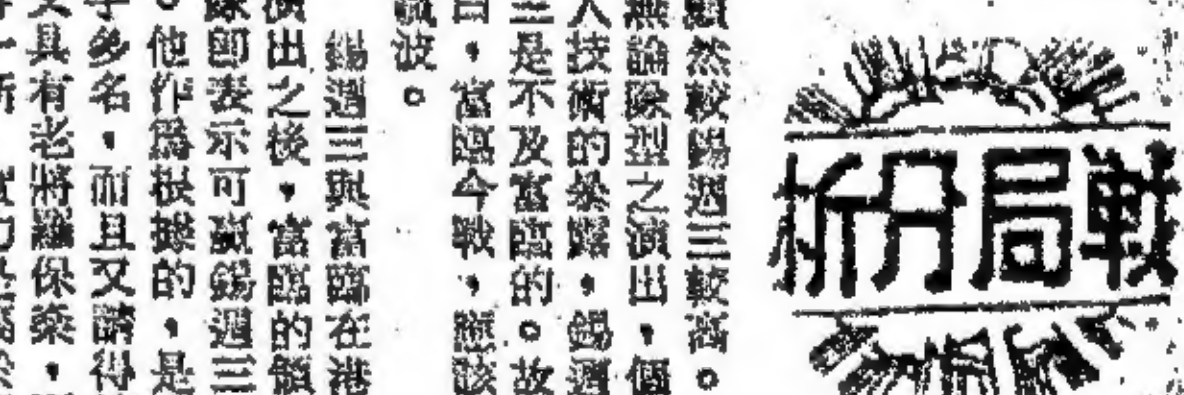 戰局分析
顯然較錫週三較高。
無論陣型之演出,個
人技術的暴露,錫週
三是不及富臨的。故
日,富臨今戰,應該
風波。
錫週三與富臨在港
演出之後,富臨的領
隊卽表示可贏錫週三
。他作爲根據的,是
字多名,而且又請得
又具有老將羅保樂,